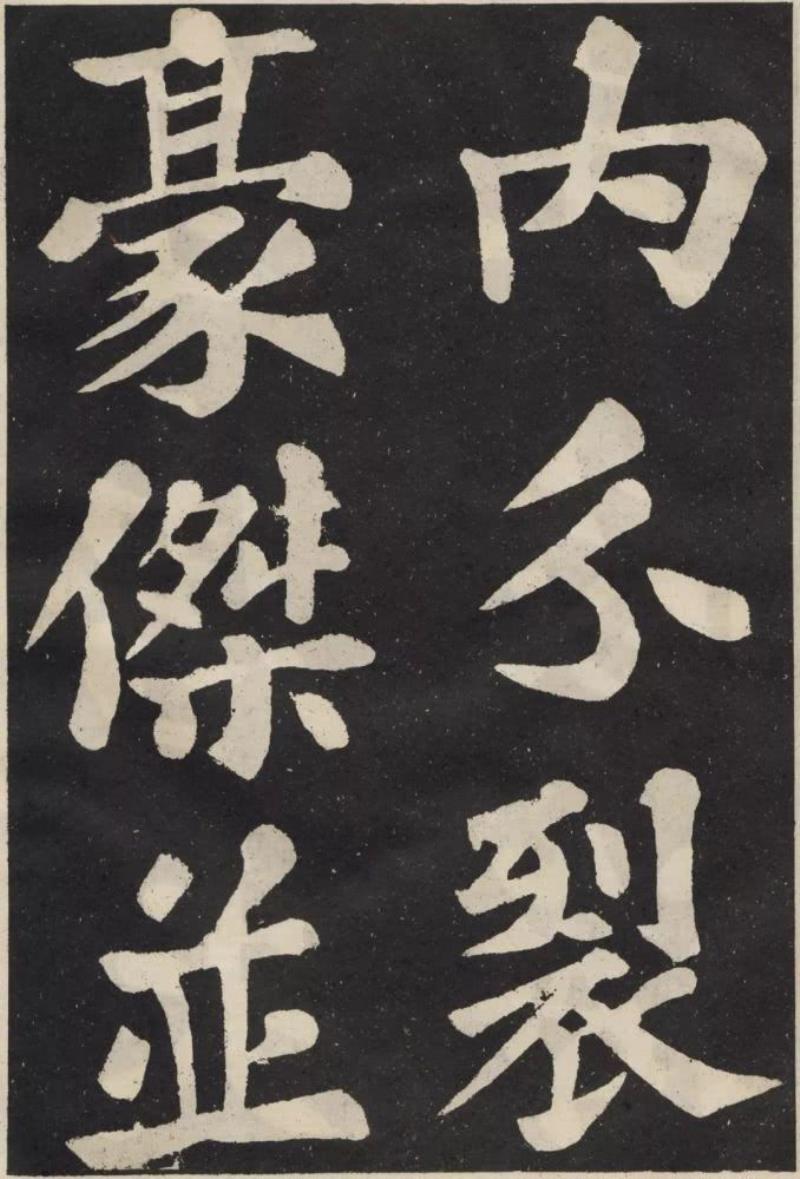 内分裂
豪傑並